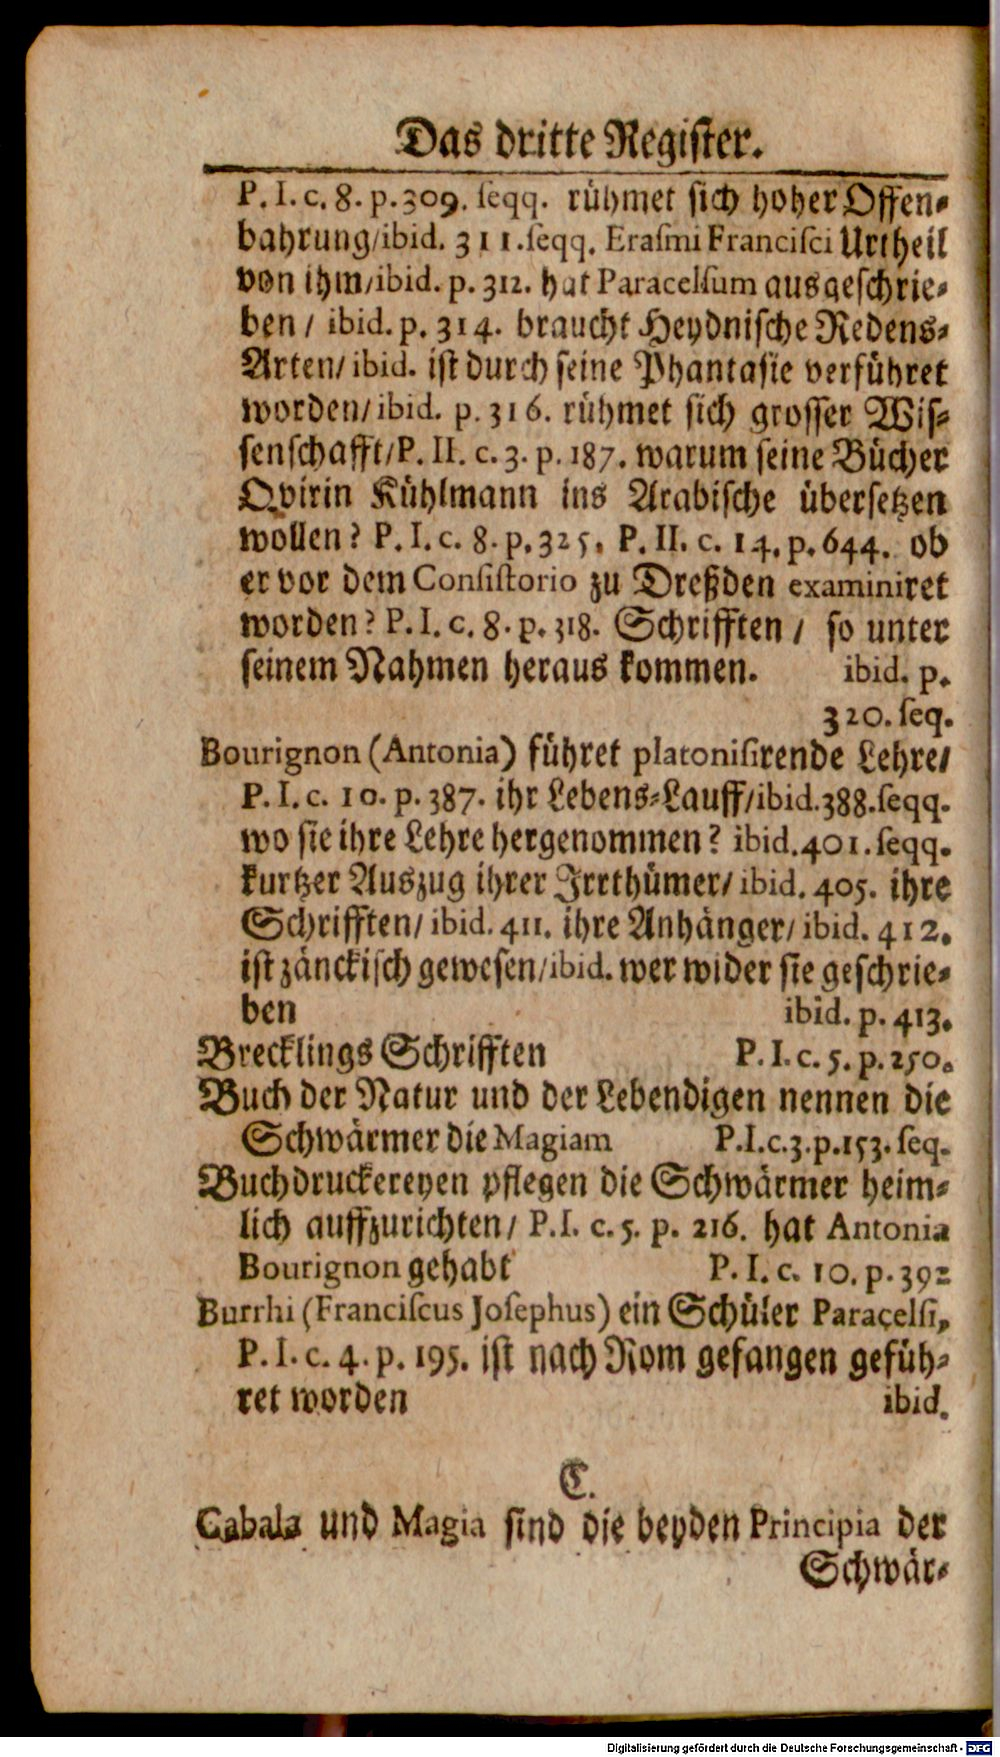 Das dritte Register.
P. I. c. 8. p. 309. seqq. rühmet sich hoher Offen-
bahrung/ibid. 311. seqq. Erasmi Francisci Urtheil
von ihm/ibid. p. 312. hat Paracelsum ausgeschrie-
ben / ibid. p. 314. braucht Heydnische Redens-
Arten/ ibid. ist durch seine Phantasie verführet
worden/ibid. p. 316. rühmet sich grosser Wis-
senschafft/P. II. c. 3. p. 187. warum seine Bücher
Qvirin Kühlmann ins Arabische übersetzen
wollen? P. I. c. 8. p. 325. P. II. c. 14. p. 644. ob
er vor dem Consistorio zu Dreßden examiniret
worden? P. I. c. 8. p. 318. Schrifften / so unter
seinem Nahmen heraus kommen. ibid. p.
320. seq.
Bourignon (Antonia) führet platonisirende Lehre/
P. I. c. 10. p. 387. ihr Lebens-Lauff/ibid. 388. seqq.
wo sie ihre Lehre hergenommen? ibid. 401. seqq.
kurtzer Auszug ihrer Irrthümer/ ibid. 405. ihre
Schrifften/ ibid. 411. ihre Anhänger/ ibid. 412.
ist zänckisch gewesen/ibid. wer wider sie geschrie-
ben ibid. p. 413.
Brecklings Schrifften P. I. c. 5. p. 250.
Buch der Natur und der Lebendigen nennen die
Schwärmer die Magiam P. I. c. 3. p. 153. seq.
Buchdruckereyen pflegen die Schwärmer heim-
lich auffzurichten/ P. I. c. 5. p. 216. hat Antonia
Bourignon gehabt P. I. c. 10. p. 392
Burrhi (Franciscus Josephus) ein Schüler Paracelsi,
P. I. c. 4. p. 195. ist nach Rom gefangen gefüh-
ret worden ibid.
C.
Cabala und Magia sind die beyden Principia der
Schwär-
Digitalisierung gefördert durch die Deutsche Forschungsgemeinschaft - DFG